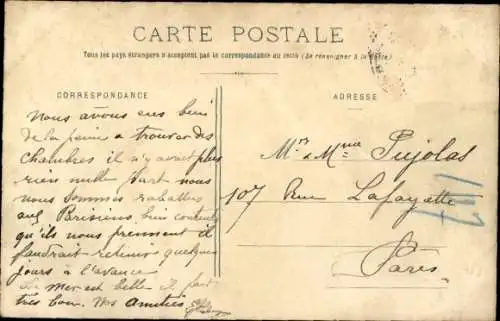 CARTE POSTALE
Tous les pays étrangers n'acceptent pas la correspondance au recto (Se renseigner à la Poste)
CORRESPONDANCE
ADRESSE
Nous avons eus bien
de la peine a trouver des
chambres il n'y avait plus
rien nulle part nous
nous sommes rabattus
aux Parisiens, bien contents
qu'ils nous prennent il
faudrait retenir quelques
jours à l'avance
La mer est belle il fait
très bon. Nos Amitiés
Mr & Mme Pujolas
107 Rue Lafayette
Paris
107